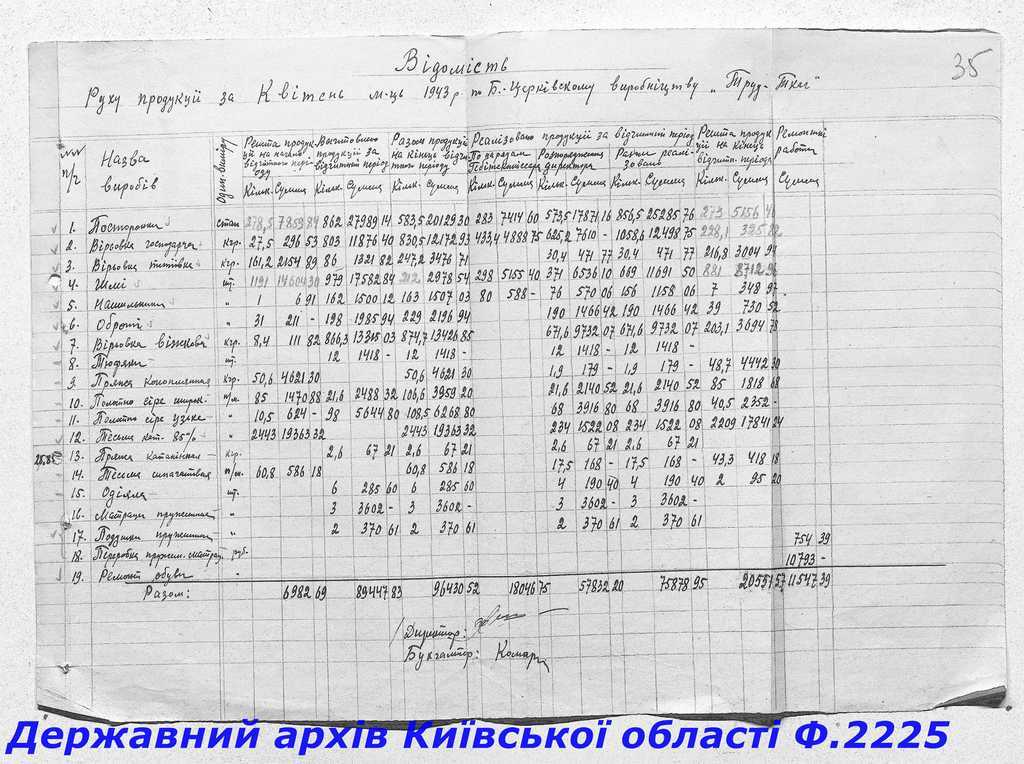 35
Відомість
Руху продукції за Квітень м-ць 1943 р. по Б.-Церківському виробництву „Труд-Ткач"
№№ п/ч Назва виробів Один. виміру Решта продукції на начало відчітного періоду Виготовлено продукції за відчітний період Разом продукції на кінець відчітного періоду Реалізовано продукції за відчитний період Решта продукції на кінець відчитн. періоду Ремонтні работи
По нарядам Гебітскомісара Розпорядження директора Разом реалізовано
Кільк. Сумма Кільк. Сумма Кільк. Сумма Кільк. Сумма Кільк. Сумма Кільк. Сумма Кільк. Сумма Сумма
1. Посторонки 278,5 7853 84 862 27989 14 583,5 20129 30 283 7414 60 573,5 17871 16 856,5 25285 76 273 5156 46
2. Вірьовка господарча кгр. 27,5 296 53 803 11876 40 830,5 12172 93 433,4 4888 75 625,2 7610 - 1058,6 12498 75
3. Вірьовка кгр. 161,2 2154 89 86 1321 82 247,2 3476 71 30,4 471 77 30,4 471 77 216,8 3004 94
4. Шлі шт. 1191 14604 30 979 17582 84 2978 54 298 5155 40 371 6536 10 669 11691 50 881 8712 96
5. Нашильники " 1 6 91 162 1500 12 163 1507 03 80 588 - 76 570 06 156 1158 06 7 348 97
6. Оброті " 31 211 - 198 1985 94 229 2196 94 190 1466 42 190 1466 42 39 730 52
7. Вірьовка віжкова кгр. 8,4 111 82 866,3 13315 03 874,7 13426 85 671,6 9732 07 671,6 9732 07 203,1 3694 78
8. Тюфяки шт. 12 1418 - 12 1418 - 12 1418 - 12 1418 -
9. Пряжа конопляная кгр. 50,6 4621 30 50,6 4621 30 1,9 179 - 1,9 179 - 48,7 4442 30
10. Полотно сіре широк. п/м. 85 1470 88 21,6 2488 32 106,6 3959 20 21,6 2140 52 21,6 2140 52 85 1818 68
11. Полотно сіре узьке " 10,5 624 - 98 5644 80 108,5 6268 80 68 3916 80 68 3916 80 40,5 2352 -
12. Тесьма кот. 85% " 2443 19363 32 2443 19363 32 234 1522 08 234 1522 08 2209 17841 24
13. Пряжа кгр. 2,6 67 21 2,6 67 21 2,6 67 21 2,6 67 21
14. Тесьма шпагатная п/м. 60,8 586 18 60,8 586 18 17,5 168 - 17,5 168 - 43,3 418 18
15. Одіяла шт. 6 285 60 6 285 60 4 190 40 4 190 40 2 95 20
16. Матраци пружинные " 3 3602 - 3 3602 - 3 3602 - 3 3602 -
17. Подушки пружинни " 2 370 61 2 370 61 2 370 61 2 370 61
18. Переробка пружин. матрац. руб. 754 39
19. Ремонт обуви " 10793 -
Разом: 6982 69 89447 83 96430 52 18046 75 57832 20 75878 95 20551 57 11547 39
Директор:
Бухгалтер: Комар
Державний архів Київської області Ф.2225